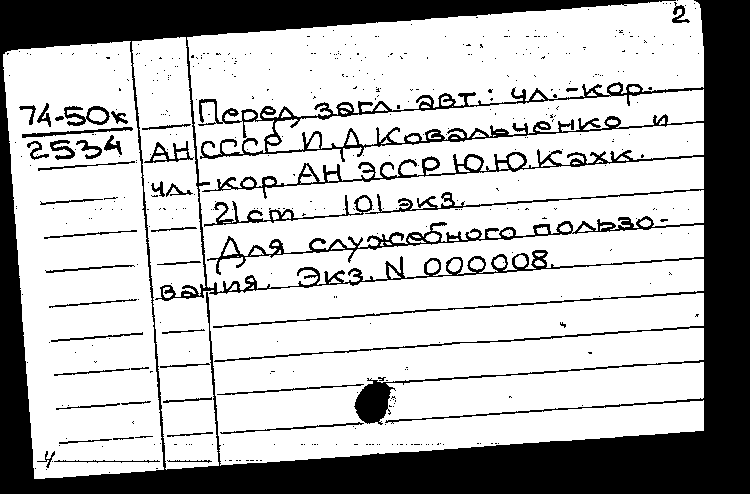 2
74-50к
2534
Перед загл. авт.: чл.-кор.
АН СССР И.Д Ковальченко и
чл.-кор. АН ЭССР Ю.Ю.Кахк.
21 cm. 101 экз.
Для служебного пользо-
вания. Экз. N 000008.
4